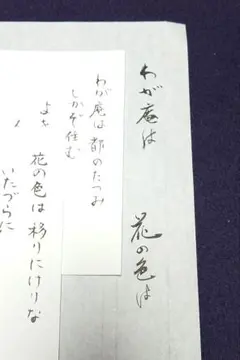 わが庵は
花の色は
わが庵は都のたつみ
しかぞ住む
よを
花の色は移りにけりな
いたづらに